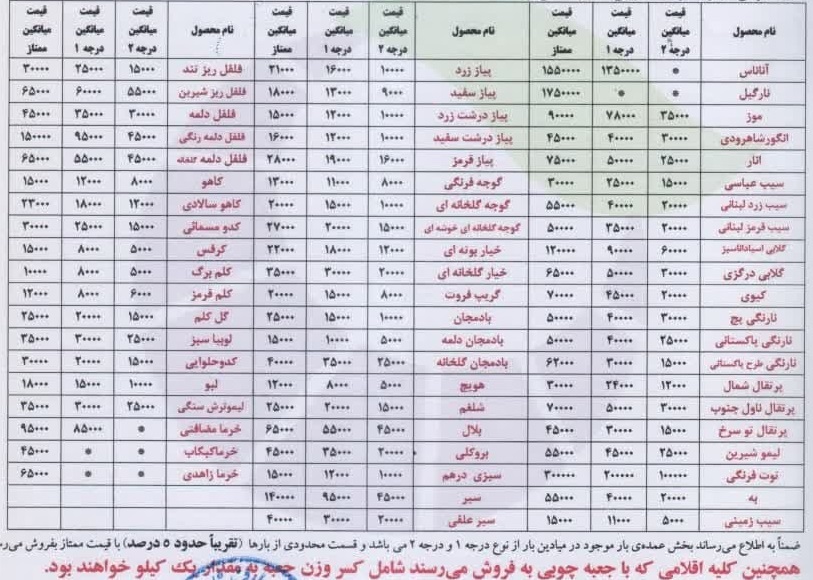 نام محصول | قیمت میانگین درجه ۲ | قیمت میانگین درجه ۱ | قیمت میانگین ممتاز | نام محصول | قیمت میانگین درجه ۲ | قیمت میانگین درجه ۱ | قیمت میانگین ممتاز | نام محصول | قیمت میانگین درجه ۲ | قیمت میانگین درجه ۱ | قیمت میانگین ممتاز
آناناس | ● | ۱۳۵۰۰۰۰ | ۱۵۵۰۰۰۰ | پیاز زرد | ۱۰۰۰۰ | ۱۶۰۰۰ | ۲۱۰۰۰ | فلفل ریز تند | ۱۵۰۰۰ | ۲۵۰۰۰ | ۳۰۰۰۰
نارگیل | ● | ● | ۱۷۵۰۰۰۰ | پیاز سفید | ۹۰۰۰ | ۱۳۰۰۰ | ۱۸۰۰۰ | فلفل ریز شیرین | ۵۵۰۰۰ | ۶۰۰۰۰ | ۶۵۰۰۰
موز | ۳۵۰۰۰ | ۷۸۰۰۰ | ۹۰۰۰۰ | پیاز درشت زرد | ۱۰۰۰۰ | ۱۲۰۰۰ | ۱۵۰۰۰ | فلفل دلمه | ۳۰۰۰۰ | ۳۵۰۰۰ | ۴۵۰۰۰
انگورشاهرودی | ۳۰۰۰۰ | ۴۰۰۰۰ | ۴۵۰۰۰ | پیاز درشت سفید | ۱۰۰۰۰ | ۱۲۰۰۰ | ۱۶۰۰۰ | فلفل دلمه رنگی | ۴۵۰۰۰ | ۹۵۰۰۰ | ۱۵۰۰۰۰
انار | ۲۵۰۰۰ | ۵۰۰۰۰ | ۷۵۰۰۰ | پیاز قرمز | ۱۶۰۰۰ | ۱۹۰۰۰ | ۲۸۰۰۰ | فلفل دلمه گلخانه | ۴۵۰۰۰ | ۵۵۰۰۰ | ۶۵۰۰۰
سیب عباسی | ۱۵۰۰۰ | ۲۵۰۰۰ | ۳۰۰۰۰ | گوجه فرنگی | ۸۰۰۰ | ۱۱۰۰۰ | ۱۳۰۰۰ | کاهو | ۸۰۰۰ | ۱۲۰۰۰ | ۱۵۰۰۰
سیب زرد لبنانی | ۲۰۰۰۰ | ۴۰۰۰۰ | ۵۵۰۰۰ | گوجه گلخانه ای | ۱۰۰۰۰ | ۱۵۰۰۰ | ۲۰۰۰۰ | کاهو سالادی | ۱۲۰۰۰ | ۱۸۰۰۰ | ۲۳۰۰۰
سیب قرمز لبنانی | ۲۰۰۰۰ | ۳۵۰۰۰ | ۵۰۰۰۰ | گوجه گلخانه ای خوشه ای | ۱۵۰۰۰ | ۲۰۰۰۰ | ۲۷۰۰۰ | کدو مسمائی | ۱۵۰۰۰ | ۲۵۰۰۰ | ۳۰۰۰۰
گلابی اسپاداناسبز | ۶۰۰۰۰ | ۹۰۰۰۰ | ۱۲۰۰۰۰ | خیار بوته ای | ۱۲۰۰۰ | ۱۸۰۰۰ | ۲۲۰۰۰ | کرفس | ۵۰۰۰ | ۸۰۰۰ | ۱۵۰۰۰
گلابی درگزی | ۳۰۰۰۰ | ۵۰۰۰۰ | ۶۵۰۰۰ | خیار گلخانه ای | ۲۰۰۰۰ | ۳۰۰۰۰ | ۳۵۰۰۰ | کلم برگ | ۵۰۰۰ | ۸۰۰۰ | ۱۰۰۰۰
کیوی | ۲۰۰۰۰ | ۴۵۰۰۰ | ۷۰۰۰۰ | گریپ فروت | ۸۰۰۰ | ۱۵۰۰۰ | ۲۰۰۰۰ | کلم قرمز | ۶۰۰۰ | ۸۰۰۰ | ۱۲۰۰۰
نارنگی پیچ | ۳۰۰۰۰ | ۴۰۰۰۰ | ۵۰۰۰۰ | بادمجان | ۱۰۰۰۰ | ۱۵۰۰۰ | ۲۵۰۰۰ | گل کلم | ۱۵۰۰۰ | ۲۰۰۰۰ | ۲۵۰۰۰
نارنگی پاکستانی | ۲۵۰۰۰ | ۴۰۰۰۰ | ۵۰۰۰۰ | بادمجان دلمه | ۵۰۰۰ | ۱۰۰۰۰ | ۱۵۰۰۰ | لوبیا سبز | ۲۵۰۰۰ | ۳۰۰۰۰ | ۳۵۰۰۰
نارنگی طرح پاکستانی | ۱۵۰۰۰ | ۳۰۰۰۰ | ۶۲۰۰۰ | بادمجان گلخانه | ۲۵۰۰۰ | ۳۵۰۰۰ | ۴۰۰۰۰ | کدوحلوایی | ۱۵۰۰۰ | ۲۰۰۰۰ | ۳۰۰۰۰
پرتقال شمال | ۱۲۰۰۰ | ۲۴۰۰۰ | ۳۰۰۰۰ | هویج | ۵۰۰۰ | ۸۰۰۰ | ۱۲۰۰۰ | لبو | ۱۰۰۰۰ | ۱۵۰۰۰ | ۱۸۰۰۰
پرتقال ناول جنوب | ۳۰۰۰۰ | ۵۰۰۰۰ | ۷۰۰۰۰ | شلغم | ۱۵۰۰۰ | ۲۰۰۰۰ | ۲۵۰۰۰ | لیموترش سنگی | ۲۵۰۰۰ | ۳۰۰۰۰ | ۳۵۰۰۰
پرتقال تو سرخ | ۱۵۰۰۰ | ۳۰۰۰۰ | ۴۵۰۰۰ | بلال | ۴۵۰۰۰ | ۵۵۰۰۰ | ۶۵۰۰۰ | خرما مضافتی | ● | ۸۵۰۰۰ | ۹۵۰۰۰
لیمو شیرین | ۲۵۰۰۰ | ۴۵۰۰۰ | ۵۵۰۰۰ | بروکلی | ۲۰۰۰۰ | ۳۵۰۰۰ | ۴۵۰۰۰ | خرماکبکاب | ● | ● | ۴۵۰۰۰
توت فرنگی | ۱۰۰۰۰۰ | ۲۰۰۰۰۰ | ۳۰۰۰۰۰ | سبزی درهم | ۱۰۰۰۰ | ۱۲۰۰۰ | ۱۵۰۰۰ | خرما زاهدی | ● | ● | ۶۵۰۰۰
به | ۲۰۰۰۰ | ۴۰۰۰۰ | ۵۵۰۰۰ | سیر | ۴۵۰۰۰ | ۹۵۰۰۰ | ۱۴۰۰۰۰
سیب زمینی | ۵۰۰۰ | ۱۱۰۰۰ | ۱۵۰۰۰ | سیر علفی | ۲۰۰۰۰ | ۳۰۰۰۰ | ۴۰۰۰۰
ضمناً به اطلاع می‌رساند بخش عمده‌ی بار موجود در میادین بار از نوع درجه ۱ و درجه ۲ می باشد و قسمت محدودی از بارها (تقریباً حدود ۵ درصد) با قیمت ممتاز بفروش
همچنین کلیه اقلامی که با جعبه چوبی به فروش می‌رسند شامل کسر وزن جعبه به مقدار یک کیلو خواهند بود.